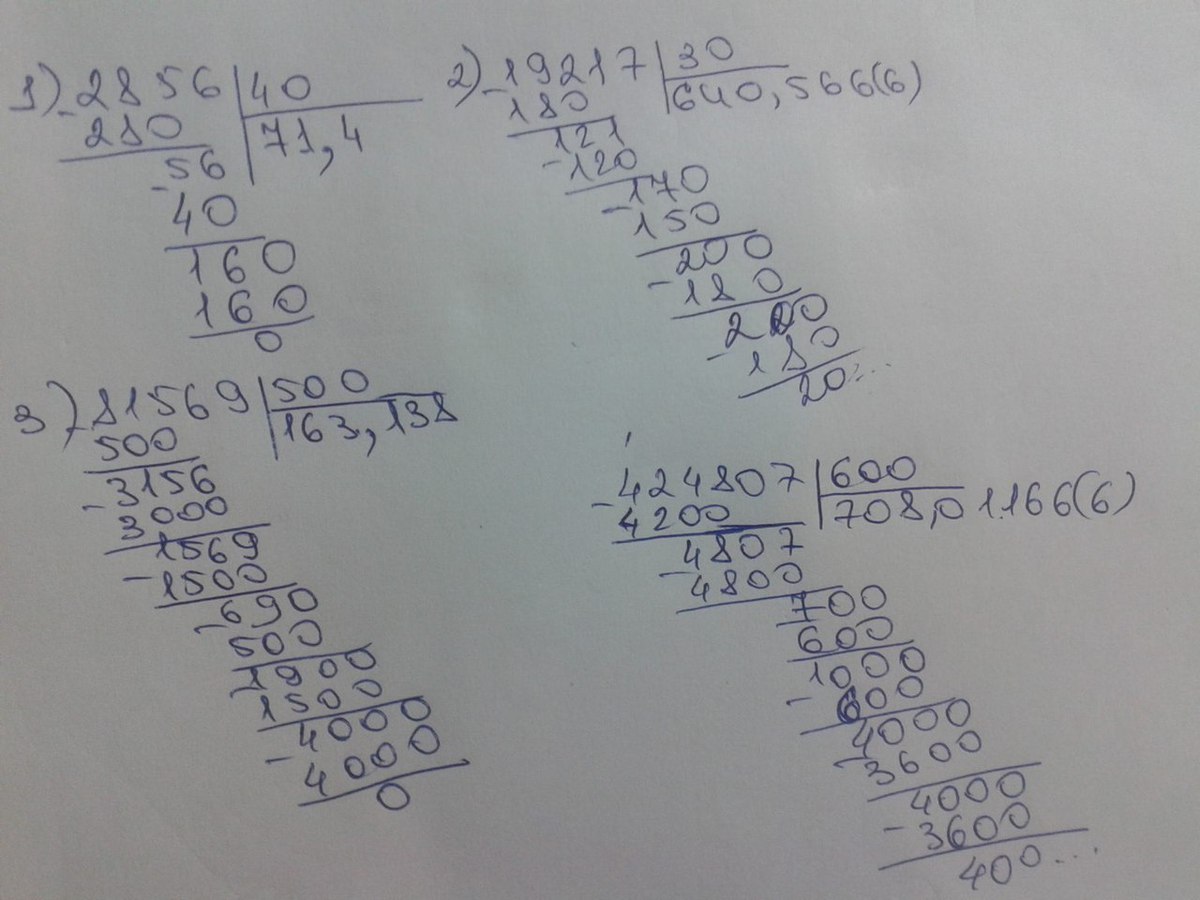 1) - 2856 | 40
280 | 71,4
56
- 40
160
160
0
2) - 19217 | 30
180 | 640,566(6)
121
- 120
170
- 150
200
- 180
200
- 180
20...
3) - 81569 | 500
500 | 163,138
- 3156
3000
1569
- 1500
690
- 500
1900
- 1500
4000
- 4000
0
- 424807 | 600
4200 | 708,01166(6)
4807
- 4800
700
- 600
1000
- 600
4000
- 3600
4000
- 3600
400...